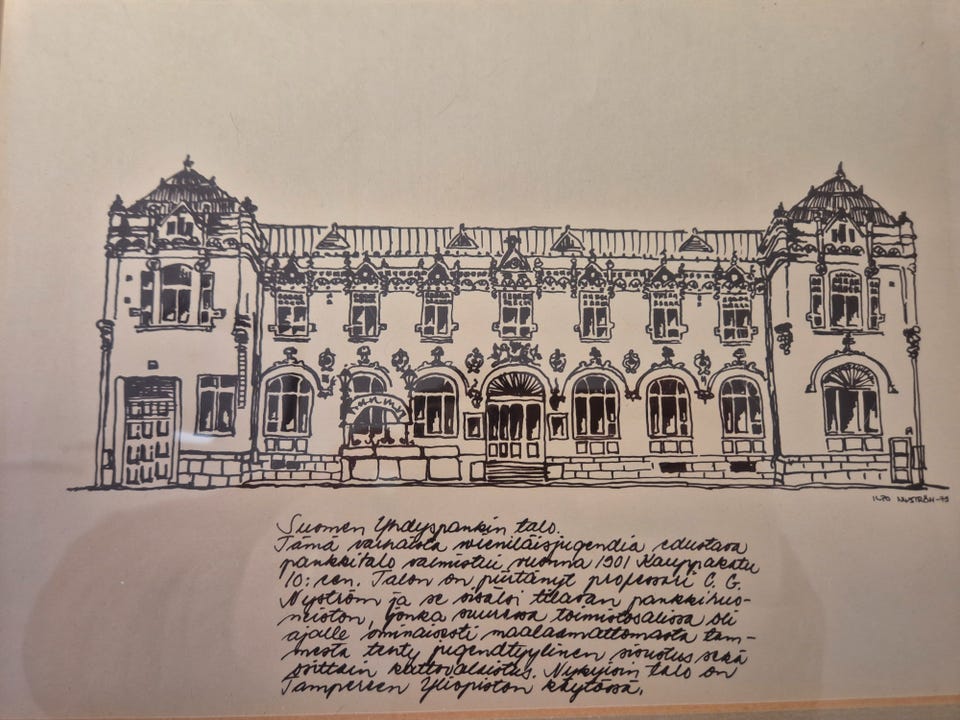 ILPO NYSTRÖM -79
Suomen Yhdyspankin talo.
Tämä varhaista wieniläisjugendia edustava
pankkitalo valmistui vuonna 1901 Kauppakatu
10:een. Talon on piirtänyt professori C. G.
Nyström ja se sisälsi tilavan pankkihuo-
neiston, jonka suuressa toimistosalissa oli
ajalle ominaisesti maalaamattomasta tam-
mesta tehty jugendtyylinen sisustus sekä
osittain kattovalaistus. Nykyisin talo on
Tampereen Yliopiston käytössä.